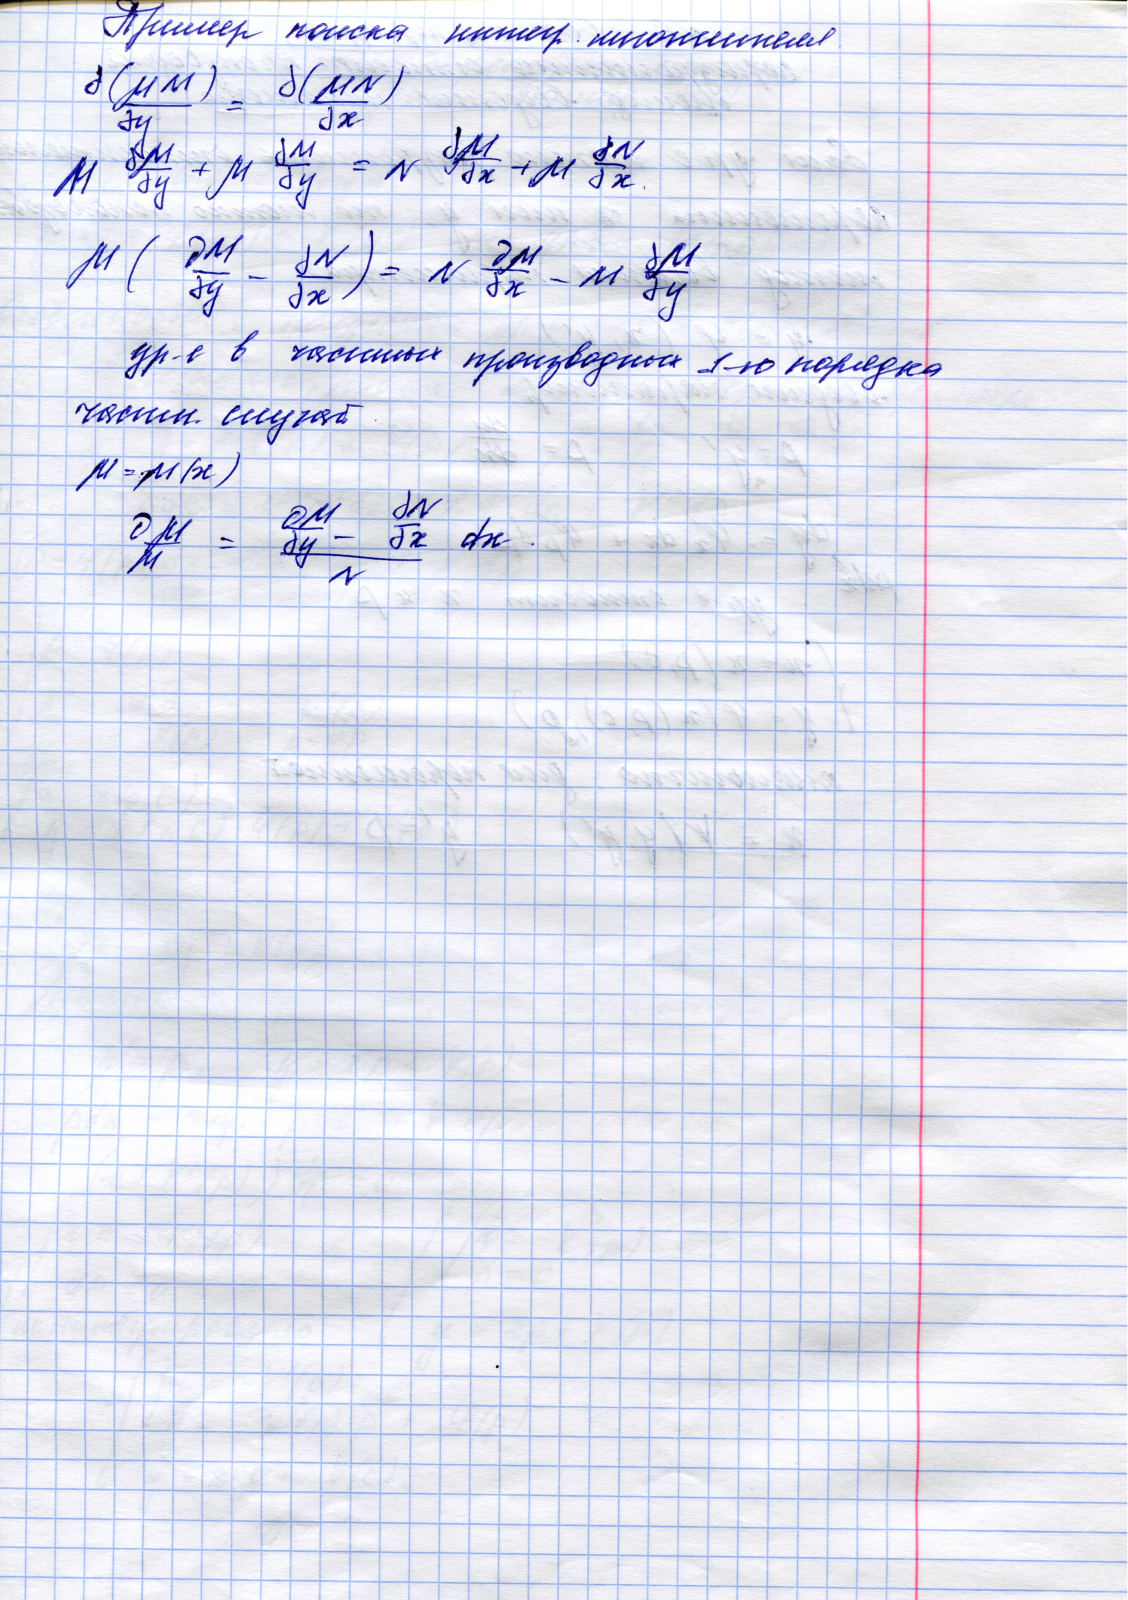 Пример поиска интегр. множителя.
∂(μM)/∂y = ∂(μN)/∂x
M ∂μ/∂y + μ ∂M/∂y = N ∂μ/∂x + μ ∂N/∂x.
μ(∂M/∂y − ∂N/∂x) = N ∂μ/∂x − M ∂μ/∂y
ур-е в частных производных 1-го порядка
частн. случай.
μ = μ(x)
∂μ/μ = (∂M/∂y − ∂N/∂x)/N dx.